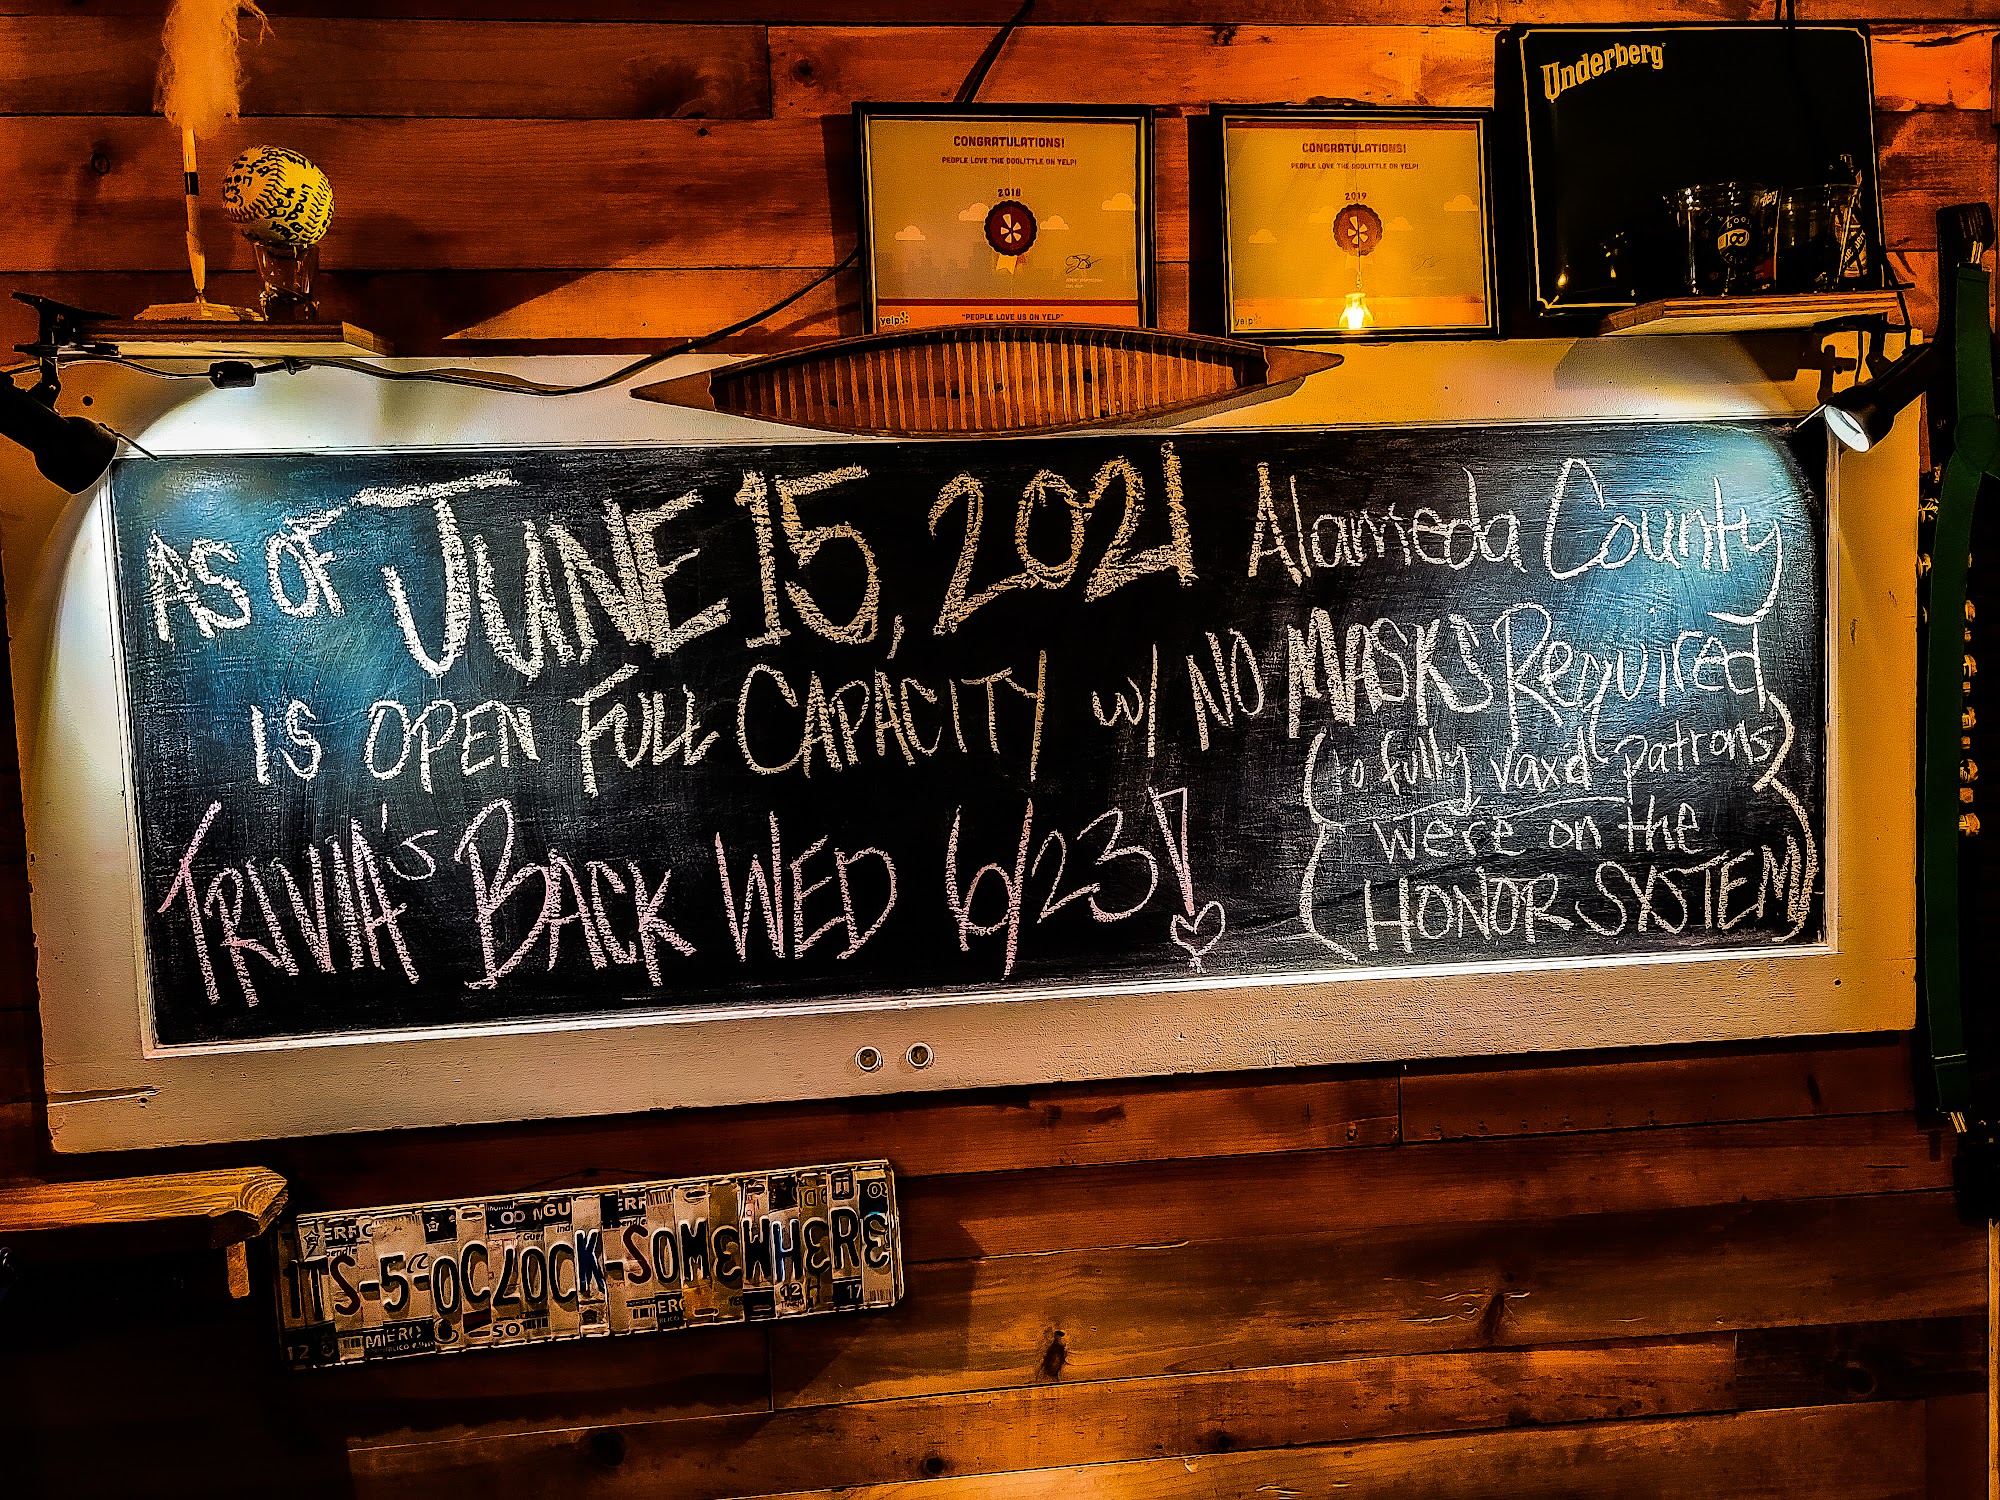 Underberg
CONGRATULATIONS!
PEOPLE LOVE THE DOOLITTLE ON YELP!
2018
yelp
"PEOPLE LOVE US ON YELP"
CONGRATULATIONS!
PEOPLE LOVE THE DOOLITTLE ON YELP!
2019
yelp
AS OF JUNE 15, 2021 Alameda County
IS OPEN FULL CAPACITY w/ NO MASKS Required
(to fully vaxd patrons)
TRIVIA'S BACK WED 6/23!
(were on the
HONOR SYSTEM)
ITS-5-OCLOCK-SOMEWHERE